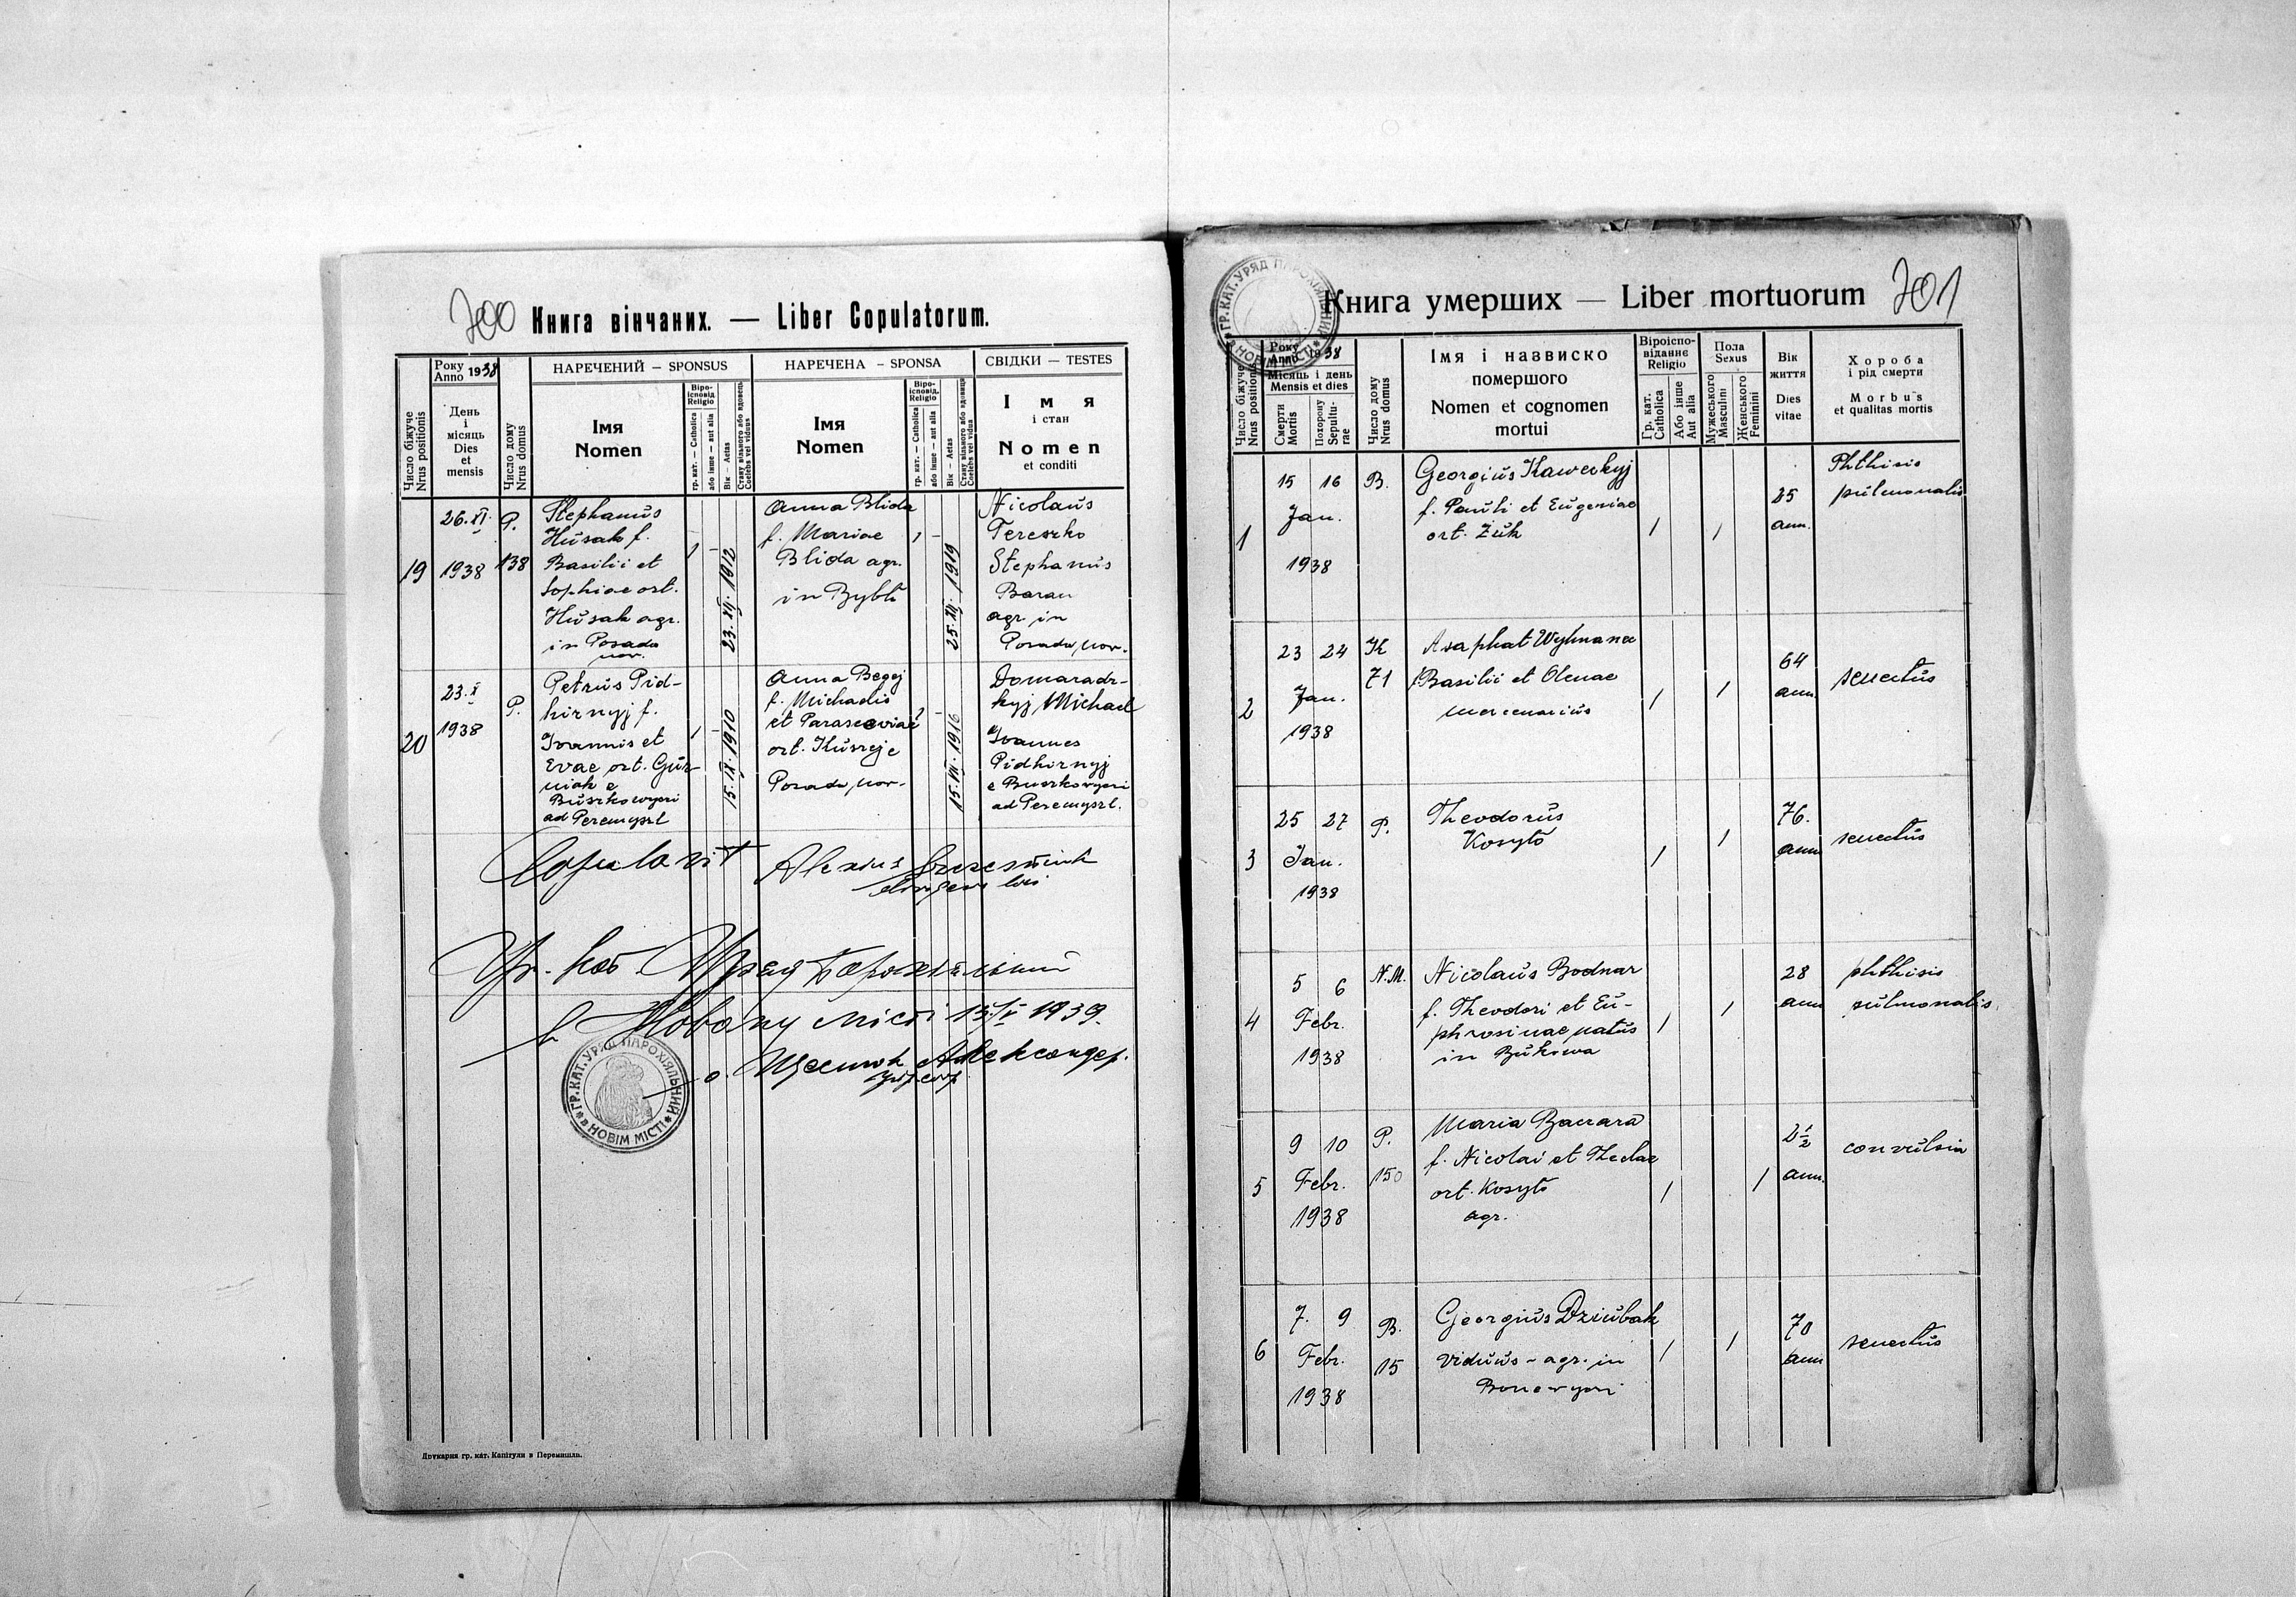 700 Книга вінчаних. — Liber Copulatorum.
Число біжуче
Nrus positionis
Року
Anno 1938
День
і
місяць
Dies
et
mensis
Число дому
Nrus domus
НАРЕЧЕНИЙ – SPONSUS
Імя
Nomen
Віро-
ісповід.
Religio
гр. кат. — Catholica
або інше — aut alia
Вік — Aetas
Стану вільного або вдовець
Coelebs vel viduus
НАРЕЧЕНА – SPONSA
Імя
Nomen
Віро-
ісповід.
Religio
гр. кат. — Catholica
або інше — aut alia
Вік — Aetas
Стану вільного або вдовиця
Coelebs vel vidua
СВІДКИ — TESTES
Імя
і стан
Nomen
et conditi
19
26. XI.
1938
P.
138
Stephanus
Husak f.
Basilii et
Sophiae ort.
Husak agr.
in Posada
nov.
23. XII. 1912
Anna Blida
f. Mariae
Blida agr.
in Bybło
25. XII. 1919
Nicolaus
Tereszko
Stephanus
Baran
agr. in
Posada nov.
20
23. X
1938
P.
Petrus Pid-
hirnyj f.
Ioannis et
Evae ort. Guz-
niak e
Buszkowyczi
ad Peremyszl
15. IX. 1910
Anna Begej
f. Michaelis
et Parasceviae
ort.
Posada nov.
15. VII. 1916
Domaradz-
kyj Michael
Ioannes
Pidhirnyj
e Buszkowyczi
ad Peremyszl.
Copulavit Alexius
Гр. кат. Уряд Парохіяльний
в Новому Місті 13/V 1939.
о. Александер.
ГР. КАТ. УРЯД ПАРОХІЯЛЬНИЙ
в НОВІМ МІСТІ
Друкарня гр. кат. Капітули в Перемишли.
Книга умерших — Liber mortuorum 701
ГР. КАТ. УРЯД ПАРОХІЯЛЬНИЙ
в НОВІМ МІСТІ
Число біжуче
Nrus positionis
Року
Anno 1938
Місяць і день
Mensis et dies
Смерти
Mortis
Похорону
Sepultu-
rae
Число дому
Nrus domus
Імя і назвиско
помершого
Nomen et cognomen
mortui
Віроіспо-
віданнє
Religio
Гр. кат.
Catholica
Або інше
Aut alia
Пола
Sexus
Мужеського
Masculini
Женського
Feminini
Вік
життя
Dies
vitae
Хороба
і рід смерти
Morbus
et qualitas mortis
1
15 16
Jan.
1938
B.
Georgius Kaweckyj
f. Pauli et Eugeniae
ort. Żuk
25
ann.
Phthisis
pulmonalis
2
23 24
Jan.
1938
K
71
Asaphat Wyhnanec
f. Basilii et Olenae
mercenarius
64
ann.
senectus
3
25 27
Jan.
1938
P.
Theodorus
Kosyło
76.
ann.
senectus
4
5 6
Febr.
1938
N.M.
Nicolaus Bodnar
f. Theodori et Eu-
phrosinae natus
in Bukowa
28
ann
phthisis
pulmonalis.
5
9 10
Febr.
1938
P.
150
Maria Baczara
f. Nicolai et Theclae
ort. Kosyło
agr.
2½
ann.
convulsia
6
7. 9
Febr.
1938
B.
15
Georgius Dziubak
viduus - agr. in
Bonewyczi
70
ann
senectus